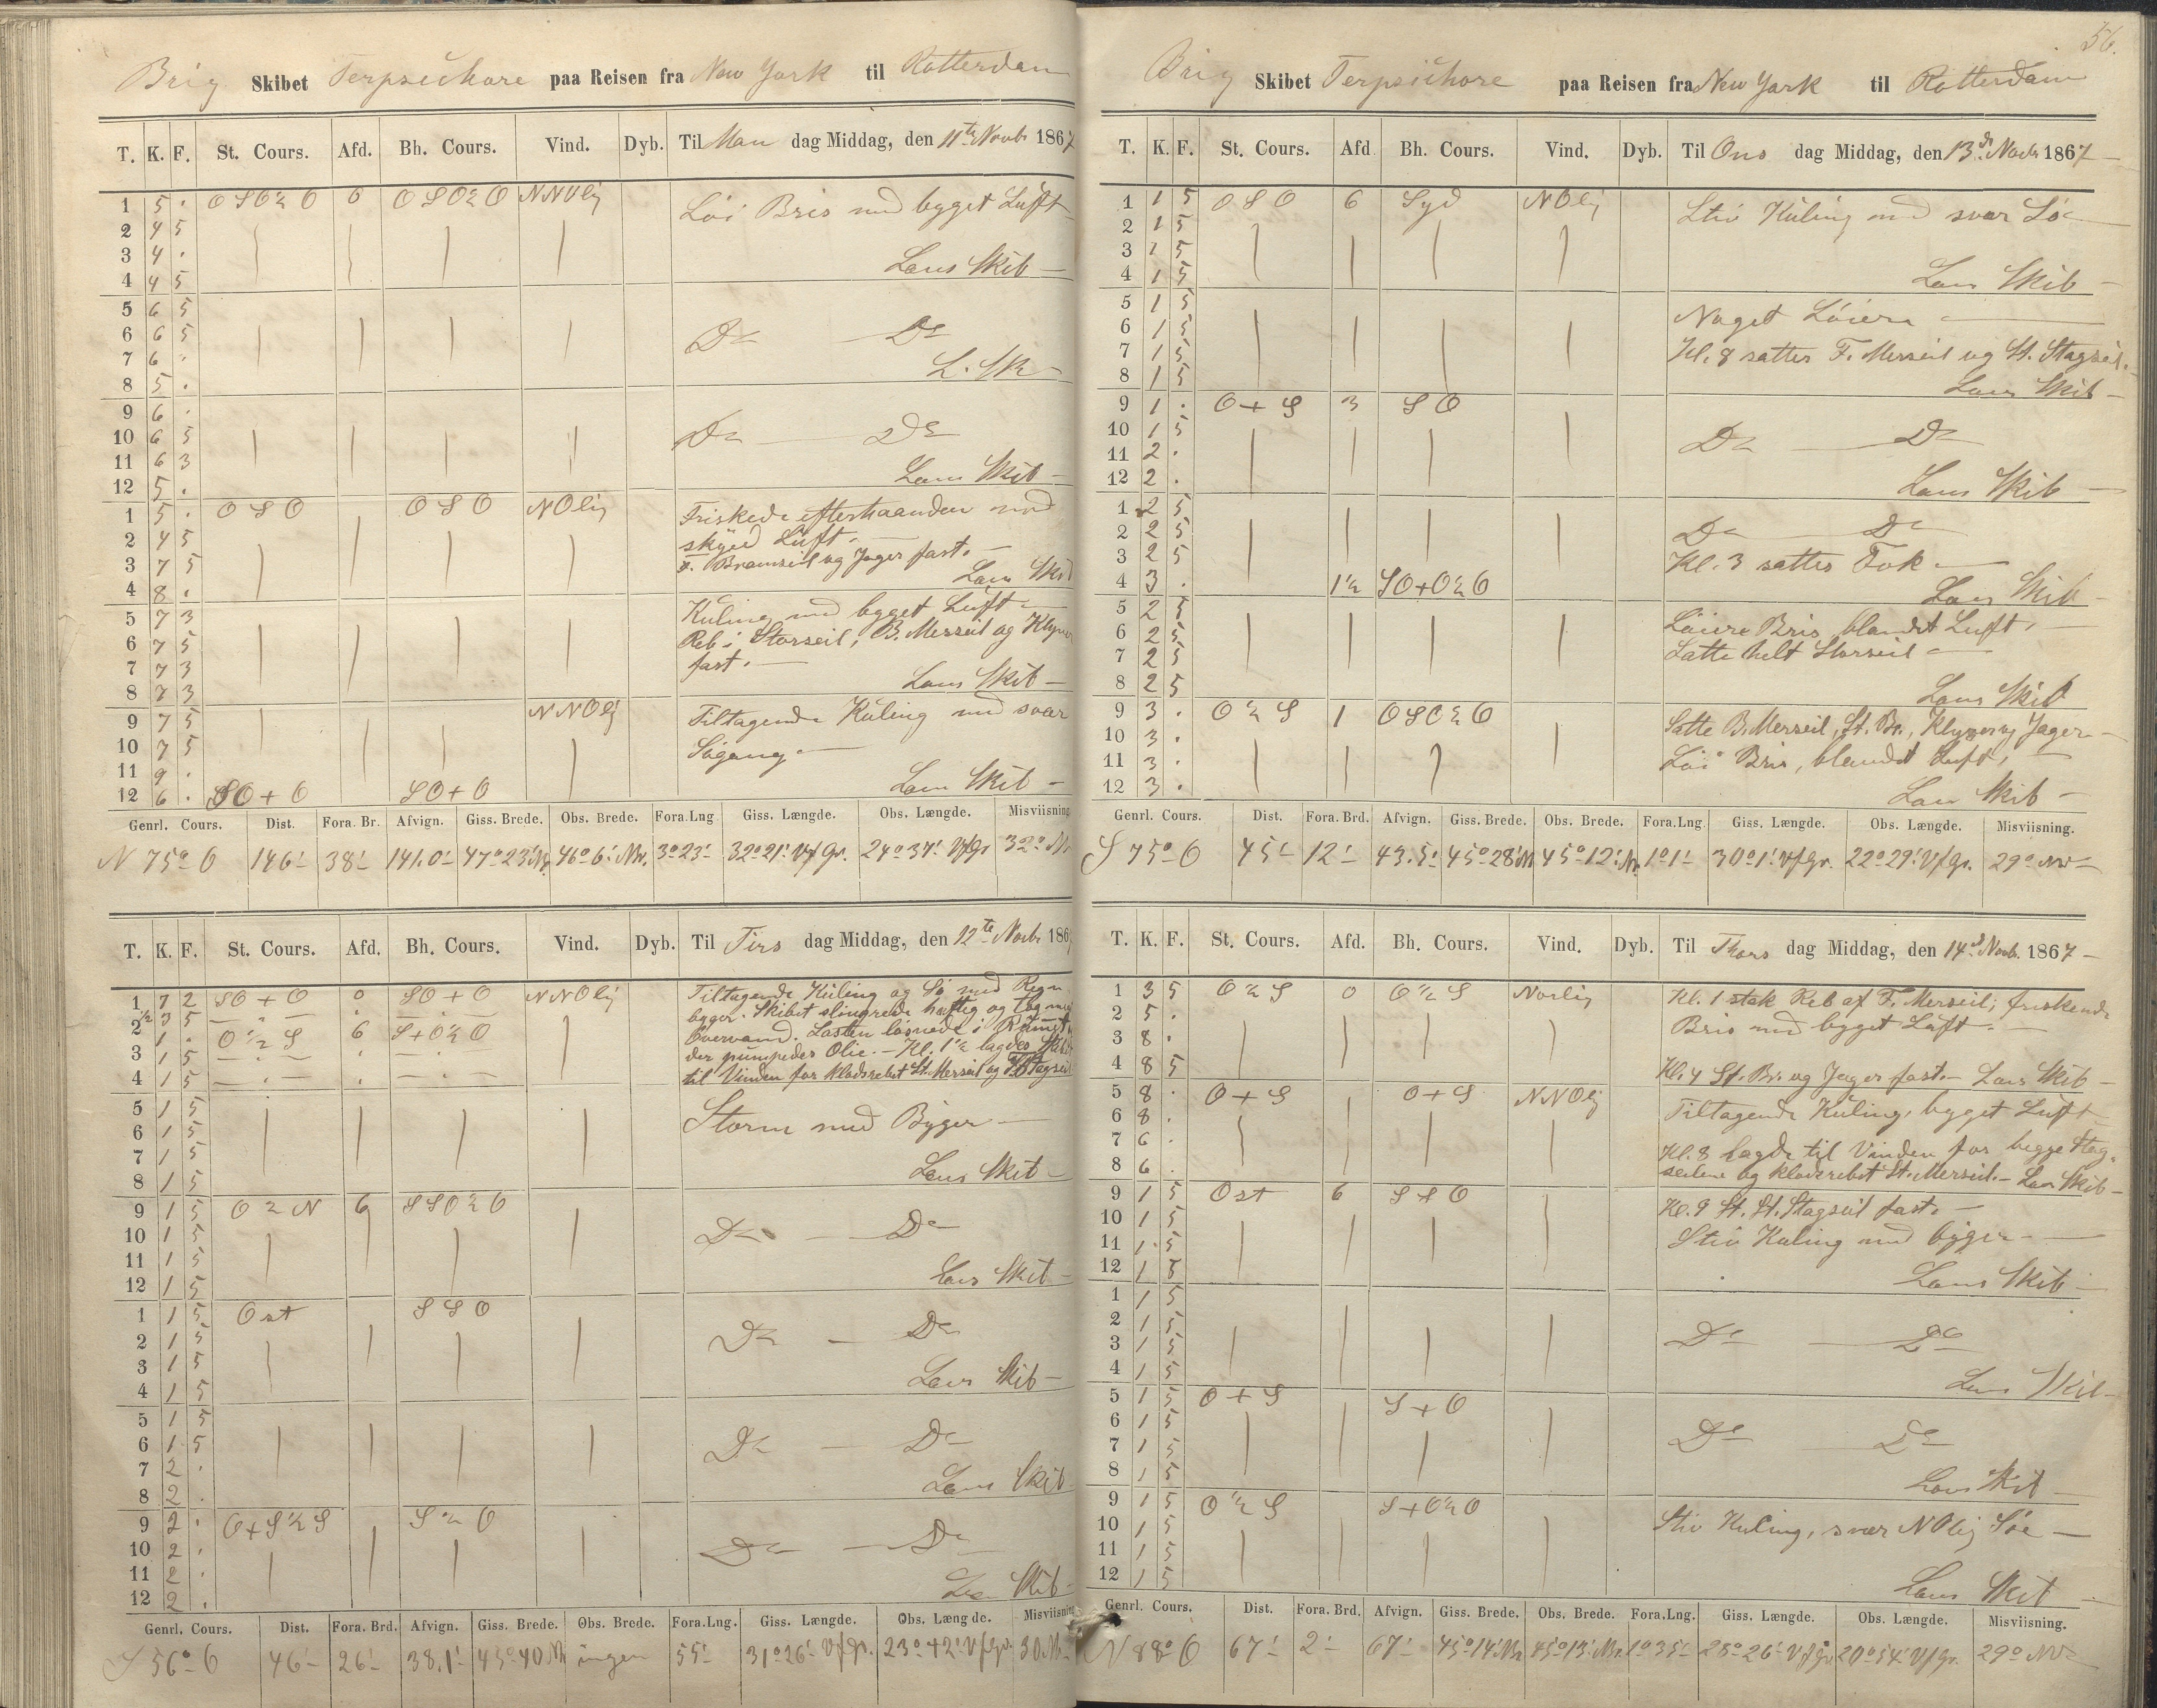 Brig Skibet Terpsichore paa Reisen fra New York til Rotterdam
T. K. F. St. Cours. Afd. Bh. Cours. Vind. Dyb. Til Man dag Middag, den 11te Novbr 1867
1 5 . OSO½O 0 OSO½O NNOlig Löi Bris med byget Luft
2 4 5
3 4 . Lens Skib
4 4 5
5 6 5
6 6 5 Do Do
7 6 . L. Sk
8 5 .
9 6 .
10 6 5 Do Do
11 6 3
12 5 . Lens Skib
1 5 . OSO OSO NOlig Friskede efterhaanden med
2 4 5 skyed Luft.
3 7 5 F. Bramseil og Jager fast.
4 8 . Lens Skib
5 7 3 Kuling med bygget Luft
6 7 5 Reb i Storseil, B. Merseil og Klyver
7 7 3 fast.
8 7 3 Lens Skib
9 7 5 NNOlig Tiltagende Kuling med svær
10 7 5 Sögang
11 9 .
12 6 . SO+O SO+O Lens Skib
Genrl. Cours. Dist. Fora. Br. Afvign. Giss. Brede. Obs. Brede. Fora.Lng Giss. Længde. Obs. Længde. Misviisning
N 75° O 146' 38' 141.0' 47°23' Nr. 46°6' Nr. 3°23' 32°21' V f Gr. 24°37' V f Gr 32°
T. K. F. St. Cours. Afd. Bh. Cours. Vind. Dyb. Til Tirs dag Middag, den 12te Novbr 186
1 7 2 SO+O 0 SO+O NNOlig Tiltagende Kuling og Sö med Regn
½ 3 5 byger. Skibet slingrede hæftig og tog med
2 1 . O½S 6 S+O½O Overvand. Lasten losnede i Rummet
3 1 5 der pumpedes Olie. Kl. 1½ lagdes Skibet
4 1 5 til Vinden for klodsrebet St. Merseil og F. Stagseil
5 1 5
6 1 5 Storm med Byger
7 1 5
8 1 5 Lens Skib
9 1 5 O½N 6 SSO½O
10 1 5 Do Do
11 1 5
12 1 5 Lens Skib
1 1 5 Ost SSO
2 1 5 Do Do
3 1 5
4 1 5 Lens Skib
5 1 5
6 1 5 Do Do
7 2 .
8 2 . Lens Skib
9 2 . O+S½S S½O
10 2 . Do Do
11 2 .
12 2 . Lens Skib
Genrl. Cours. Dist. Fora. Brd. Afvign. Giss. Brede. Obs. Brede. Fora.Lng. Giss. Længde. Obs. Længde. Misviisning
S 56° O 46' 26' 38.1' 45°40' N ingen 55' 31°26' V f Gr. 23°42' V f Gr. 30.
56.
Brig Skibet Terpsichore paa Reisen fra New York til Rotterdam
T. K. F. St. Cours. Afd Bh. Cours. Vind. Dyb. Til Ons dag Middag, den 13de Novbr 1867
1 1 5 OSO 6 Syd NOlig Stiv Kuling med svær Sö
2 1 5
3 1 5
4 1 5 Lens Skib
5 1 5 Noget Löiere
6 1 5
7 1 5 Kl. 8 sattes F. Merseil og St. Stagseil.
8 1 5 Lens Skib
9 1 . O+S 3 SO
10 1 5 Do Do
11 2 .
12 2 . Lens Skib
1 2 5
2 2 5 Do Do
3 2 5 Kl. 3 sattes Fok
4 3 . 1½ SO+O½O Lens Skib
5 2 5 Löiere Bris, blandet Luft.
6 2 5 Satte helt Storseil
7 2 5
8 2 5 Lens Skib
9 3 . O½S 1 OSO½O Satte B. Merseil, St. Br., Klyver og Jager
10 3 .
11 3 . Löi Bris, blandet Luft,
12 3 . Lens Skib
Genrl. Cours. Dist. Fora. Brd. Afvign. Giss. Brede. Obs. Brede. Fora.Lng. Giss. Længde. Obs. Længde. Misviisning.
S 75° O 45' 12' 43.5' 45°28' N 45°12' Nr. 1°1' 30°1' V f Gr. 22°29' V f Gr. 29° NV
T. K. F. St. Cours. Afd. Bh. Cours. Vind. Dyb. Til Thors dag Middag, den 14de Novb. 1867
1 3 5 O½S 0 O½S Norlig Kl. 1 stak Reb af F. Merseil; friskende
2 5 . Bris med bygget Luft.
3 8 .
4 8 5 Kl. 4 St. Br. og Jager fast. Lens Skib
5 8 . O+S O+S NNOlig Tiltagende Kuling, bygget Luft
6 8 .
7 6 . Kl. 8 lagde til Vinden for begge Stag-
8 6 . seilene og klodsrebet St. Merseil. Lens Skib
9 1 5 Ost 6 SSO Kl. 9 St. St. Stagseil fast.
10 1 5 Stiv Kuling med byger
11 1 5
12 1 5 Lens Skib
1 1 5
2 1 5
3 1 5 Do Do
4 1 5 Lens Skib
5 1 5 O+S S+O
6 1 5 Do Do
7 1 5
8 1 5 Lens Skib
9 1 5 O½S S+O½O
10 1 5 Stiv Kuling, svær NOlig Söe
11 1 5
12 1 5 Lens Skib
Genrl. Cours. Dist. Fora. Brd. Afvign. Giss. Brede. Obs. Brede. Fora.Lng. Giss. Længde. Obs. Længde. Misviisning.
N 88° O 67' 2' 67' 45°14' Nr 45°13' Nr. 1°35' 28°26' V f Gr 20°54' V f Gr. 29° NV